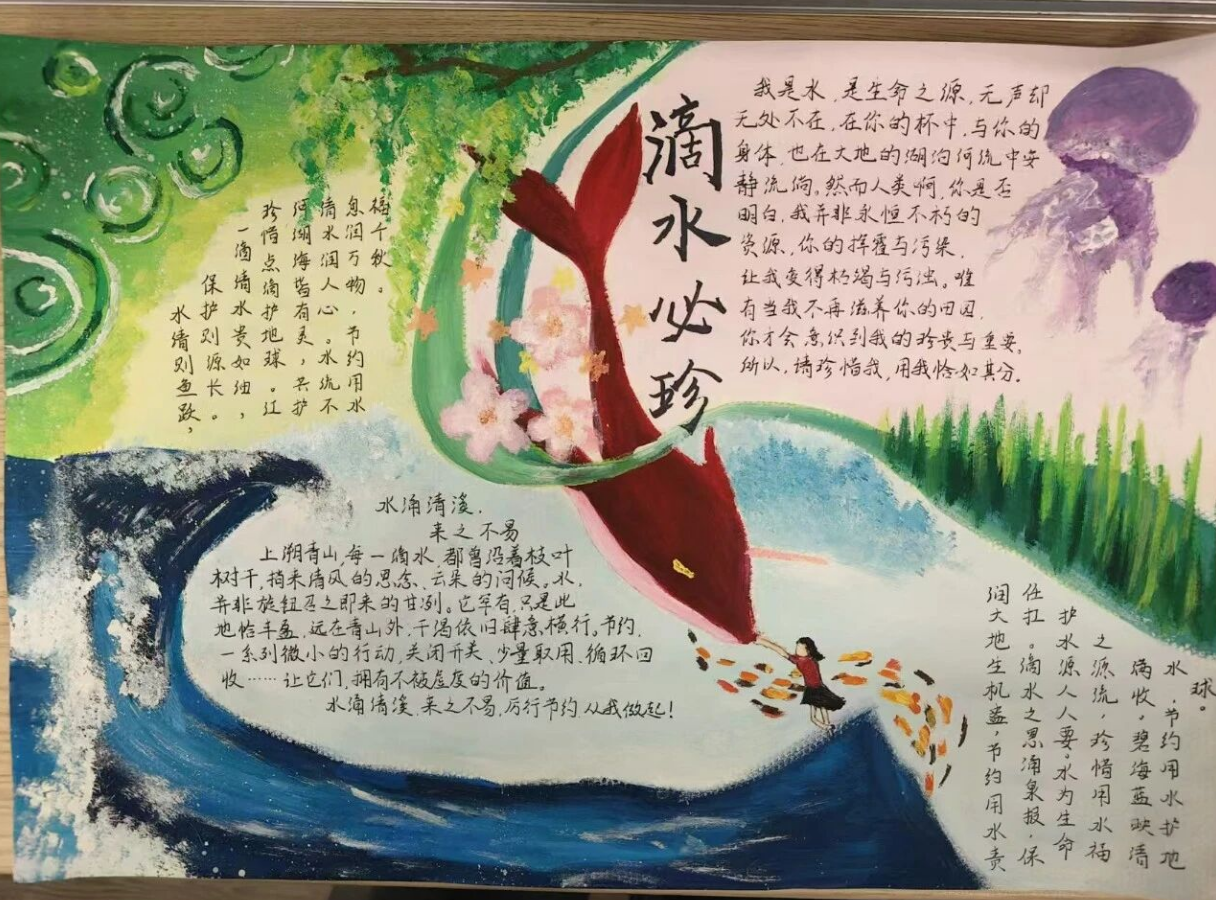 滴水必珍
我是水，是生命之源，无声却
无处不在，在你的杯中，与你的
身体，也在大地的湖泊河流中安
静流淌。然而人类啊，你是否
明白，我并非永恒不朽的
资源，你的挥霍与污染，
让我变得枯竭与污浊。唯
有当我不再滋养你的田园，
你才会意识到我的珍贵与重要，
所以，请珍惜我，用我恰如其分。
水清则鱼跃，
保护则源长。
一滴清水贵如油，
珍惜点滴护地球。江
河湖海皆有灵，共护
清水润人心。水流不
息润万物，节约用水
福千秋。
水滴清浅，
来之不易
上溯青山，每一滴水，都曾沿着枝叶
树干，捎来清风的思念、云朵的问候。水，
并非旋钮召之即来的甘冽。它罕有，只是此
地恰丰盈，远在青山外，干渴依旧肆意横行。节约，
一系列微小的行动，关闭开关、少量取用、循环回
收……让它们，拥有不被虚度的价值。
水滴清浅，来之不易，厉行节约 从我做起！
润大地生机盎，节约用水责
任扛。滴水之恩涌泉报，保
护水源人人要。水为生命
之源流，珍惜用水福
满收。碧海蓝映清
水，节约用水护地
球。